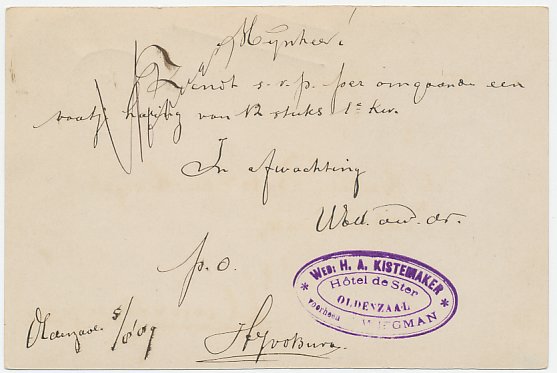 Mijnheer!
Zendt s.v.p. per omgaande een
vaatje haring van 12 stuks 1e kw.
In afwachting
Uw. dr.
p. o.
Oldenzaal 5/8 09
WED: H. A. KISTEMAKER
Hôtel de Ster
OLDENZAAL
voorheen WEGMAN